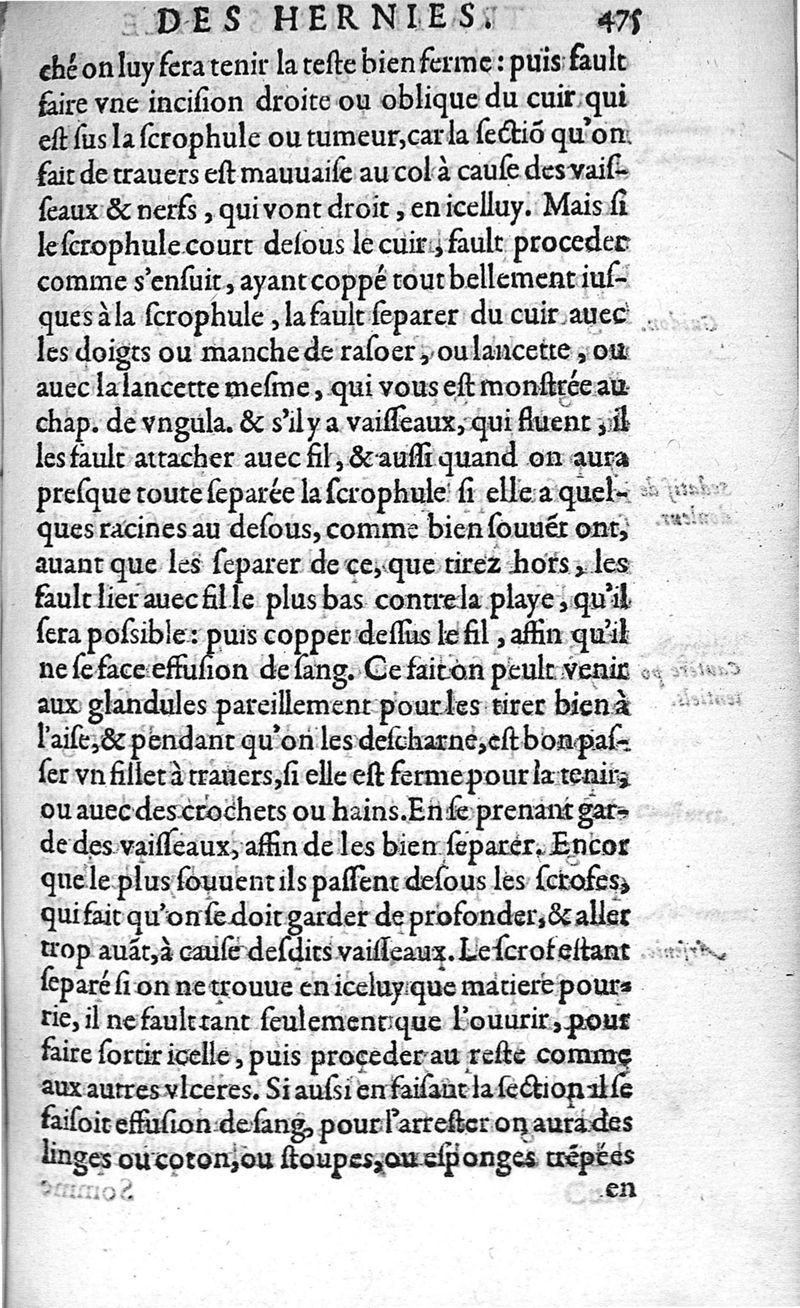 DES HERNIES. 475
ché on luy fera tenir la teſte bien ferme : puis fault
faire vne inciſion droite ou oblique du cuir qui
eſt ſus la ſcrophule ou tumeur, car la ſectiõ qu'on
fait de trauers eſt mauuaiſe au col à cauſe des vaiſ-
ſeaux & nerfs , qui vont droit , en icelluy. Mais ſi
le ſcrophule court deſous le cuir , fault proceder
comme s'enſuit , ayant coppé tout bellement iuſ-
ques à la ſcrophule , la fault ſeparer du cuir auec
les doigts ou manche de raſoer , ou lancette , ou
auec la lancette meſme , qui vous eſt monſtrée au
chap. de vngula. & s'il y a vaiſſeaux, qui fluent , il
les fault attacher auec fil , & auſſi quand on aura
preſque toute ſeparée la ſcrophule ſi elle a quel-
ques racines au deſous, comme bien ſouuẽt ont,
auant que les ſeparer de ce, que tirez hors , les
fault lier auec fil le plus bas contre la playe , qu'il
ſera poſsible : puis copper deſſus le fil , affin qu'il
ne ſe face effuſion de ſang. Ce fait on peult venir
aux glandules pareillement pour les tirer bien à
l'aiſe, & pendant qu'on les deſcharne, eſt bon paſ-
ſer vn fillet à trauers, ſi elle eſt ferme pour la tenir,
ou auec des crochets ou hains. En ſe prenant gar-
de des vaiſſeaux, affin de les bien ſeparer. Encor
que le plus ſouuent ils paſſent deſous les ſcrofes,
qui fait qu'on ſe doit garder de profonder, & aller
trop auãt, à cauſe deſdits vaiſſeaux. Le ſcrof eſtant
ſeparé ſi on ne trouue en iceluy que matiere pour-
rie, il ne fault tant ſeulement que l'ouurir, pour
faire ſortir icelle , puis proceder au reſte comme
aux autres vlceres. Si auſsi en faiſant la ſection il ſe
faiſoit effuſion de ſang, pour l'arreſter on aura des
linges ou coton, ou ſtoupes, ou eſponges trẽpées
en